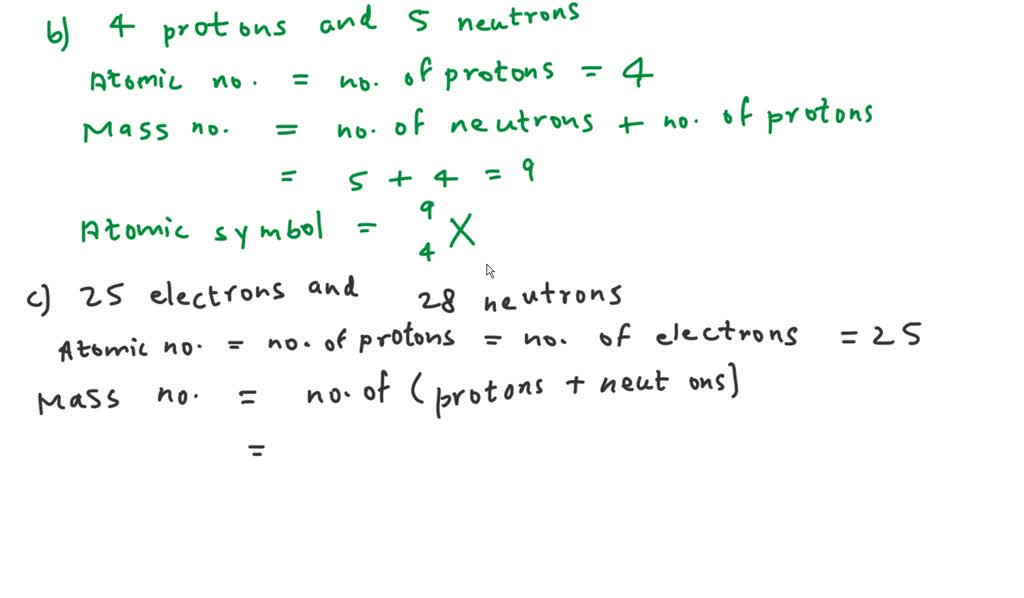 b) 4 protons and 5 neutrons
Atomic no. = no. of protons = 4
Mass no. = no. of neutrons + no. of protons
= 5 + 4 = 9
Atomic symbol = ⁹₄X
c) 25 electrons and 28 neutrons
Atomic no. = no. of protons = no. of electrons = 25
Mass no. = no. of (protons + neut ons)
=